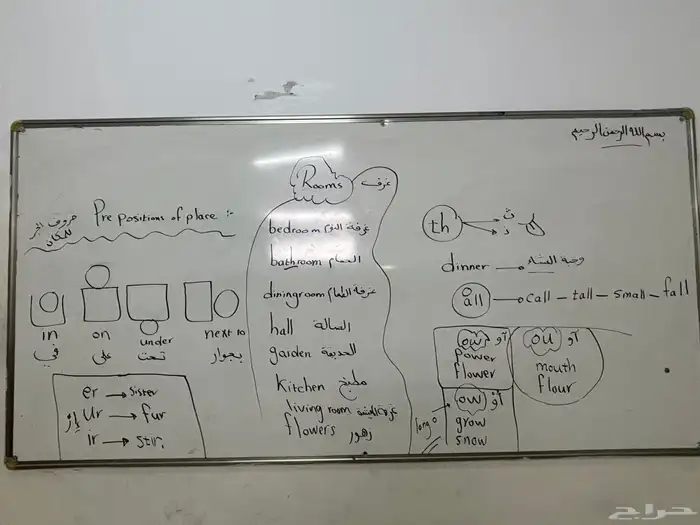 بسم الله الرحمن الرحيم
Prepositions of place :-
حروف الجر
للمكان
in on under next to
في على تحت بجوار
er → sister
ur → fur
ir → stir.
إر
Rooms غرف
bedroom غرفة النوم
bathroom الحمام
diningroom غرفة الطعام
hall الصالة
garden الحديقة
kitchen مطبخ
living room غرفة المعيشة
flowers زهور
th → ث
→ ذ
dinner → وجبة العشاء
all → call - tall - small - fall
ow آو
power
flower
ou آو
mouth
flour
ow أوْ
long o
grow
snow
حراج